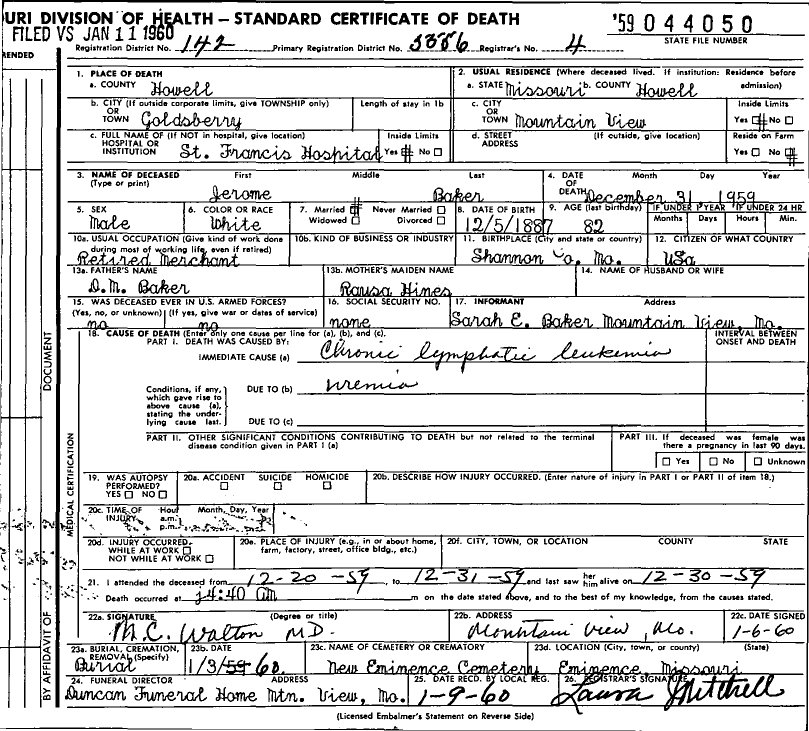 URI DIVISION OF HEALTH — STANDARD CERTIFICATE OF DEATH
'59 044050
STATE FILE NUMBER
FILED VS JAN 11 1960
Registration District No. 142 Primary Registration District No. 5886 Registrar's No. 4
ENDED
1. PLACE OF DEATH
a. COUNTY Howell
2. USUAL RESIDENCE (Where deceased lived. If institution: Residence before admission)
a. STATE Missouri b. COUNTY Howell
b. CITY (If outside corporate limits, give TOWNSHIP only) OR TOWN Goldsberry
Length of stay in 1b
c. CITY OR TOWN Mountain View
Inside Limits Yes No
c. FULL NAME OF (If NOT in hospital, give location) HOSPITAL OR INSTITUTION St. Francis Hospital
Inside Limits Yes No
d. STREET ADDRESS (If outside, give location)
Reside on Farm Yes No
3. NAME OF DECEASED (Type or print) First Middle Last
Jerome Baker
4. DATE OF DEATH Month Day Year
December 31 1959
5. SEX Male
6. COLOR OR RACE White
7. Married Never Married Widowed Divorced
8. DATE OF BIRTH 12/5/1887
9. AGE (last birthday) 82
IF UNDER 1 YEAR Months Days
IF UNDER 24 HR Hours Min.
10a. USUAL OCCUPATION (Give kind of work done during most of working life, even if retired) Retired Merchant
10b. KIND OF BUSINESS OR INDUSTRY
11. BIRTHPLACE (City and state or country) Shannon Co. Mo.
12. CITIZEN OF WHAT COUNTRY USA
13a. FATHER'S NAME D.M. Baker
13b. MOTHER'S MAIDEN NAME Rausa Hines
14. NAME OF HUSBAND OR WIFE
15. WAS DECEASED EVER IN U.S. ARMED FORCES? (Yes, no, or unknown) (If yes, give war or dates of service) no no
16. SOCIAL SECURITY NO. none
17. INFORMANT Address
Sarah E. Baker Mountain View, Mo.
18. CAUSE OF DEATH (Enter only one cause per line for (a), (b), and (c).
PART I. DEATH WAS CAUSED BY:
INTERVAL BETWEEN ONSET AND DEATH
IMMEDIATE CAUSE (a) Chronic lymphatic leukemia
Conditions, if any, which gave rise to above cause (a), stating the underlying cause last.
DUE TO (b) uremia
DUE TO (c)
PART II. OTHER SIGNIFICANT CONDITIONS CONTRIBUTING TO DEATH but not related to the terminal disease condition given in PART I (a)
PART III. If deceased was female was there a pregnancy in last 90 days.
Yes No Unknown
19. WAS AUTOPSY PERFORMED? YES NO
20a. ACCIDENT SUICIDE HOMICIDE
20b. DESCRIBE HOW INJURY OCCURRED. (Enter nature of injury in PART I or PART II of item 18.)
20c. TIME OF INJURY Hour a.m. p.m. Month, Day, Year
20d. INJURY OCCURRED WHILE AT WORK NOT WHILE AT WORK
20e. PLACE OF INJURY (e.g., in or about home, farm, factory, street, office bldg., etc.)
20f. CITY, TOWN, OR LOCATION COUNTY STATE
21. I attended the deceased from 12-20-59, to 12-31-59 and last saw her him alive on 12-30-59
Death occurred at 4:40 am m on the date stated above, and to the best of my knowledge, from the causes stated.
22a. SIGNATURE (Degree or title) M.C. Walton MD.
22b. ADDRESS Mountain View, Mo.
22c. DATE SIGNED 1-6-60
23a. BURIAL, CREMATION, REMOVAL (Specify) Burial
23b. DATE 1/3/59 60
23c. NAME OF CEMETERY OR CREMATORY New Eminence Cemetery
23d. LOCATION (City, town, or county) (State) Eminence, Missouri
24. FUNERAL DIRECTOR ADDRESS
Duncan Funeral Home Mtn. View, Mo.
25. DATE RECD. BY LOCAL REG. 1-9-60
26. REGISTRAR'S SIGNATURE Laura Mitchell
(Licensed Embalmer's Statement on Reverse Side)
DOCUMENT
MEDICAL CERTIFICATION
BY AFFIDAVIT OF